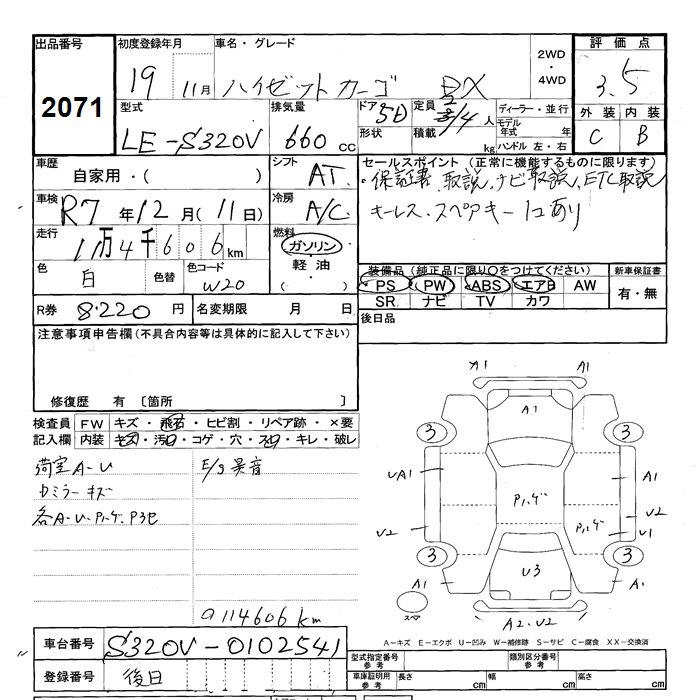 出品番号 初度登録年月 車名・グレード 2WD・4WD 評価点
2071 19 11月 ハイゼットカーゴ DX 3.5
型式 排気量 ドア 5D 定員 2/4人 ディーラー・並行 外装 内装
LE-S320V 660cc 形状 積載 kg モデル年式 年 ハンドル 左・右 C B
車歴 自家用・( ) シフト AT セールスポイント (正常に機能するものに限ります)
・保証書 取説、ナビ取説、ETC取説
車検 R7年12月(11日) 冷房 A/C キーレス、スペアキー1コあり
走行 11万4千606km 燃料 ガソリン・軽油・( )
色 白 色替 色コード W20 装備品(純正品に限り○をつけてください) 新車保証書
PS PW ABS エアB AW 有・無
SR ナビ TV カワ
R券 8,220円 名変期限 月 日 後日品
注意事項申告欄(不具合内容等は具体的に記入して下さい)
修復歴 有 〔箇所 〕
検査員記入欄 FW キズ・飛石・ヒビ割・リペア跡・×要
内装 キズ・汚れ・コゲ・穴・スレ・キレ・破レ
荷室A-U E/g異音
カミラーキズ
各A-U、P.ハゲ、P3ヒ
◎114606km
A1 A1
A1
3 3
UA1 A1
P.ハゲ
U2 U2
P.ハゲ U1
3 3
U3
A1 A1
スペア A2、U2
A-キズ E-エクボ U-凹み W-補修跡 S-サビ C-腐食 XX-交換済
車台番号 S320V-0102541
型式指定番号 参考 類別区分番号 参考
登録番号 後日 車庫証明用 参考 長さ cm 幅 cm 高さ cm